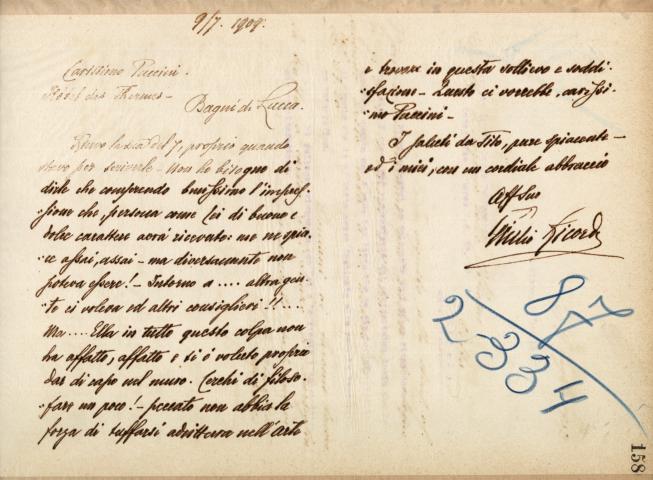 9/7. 1909.
Carissimo Puccini.
Hôtel des Thermes -
Bagni di Lucca.
Ricevo la sua del 7, proprio quando
stavo per scriverle - Non ho bisogno di
dirle che comprendo benissimo l'impres-
sione che, persona come Lei di buono e
dolce carattere avrà ricevuto: me ne spia-
ce assai, assai - ma diversamente non
poteva essere! - Intorno a .... altra gen-
te ci voleva ed altri consiglieri!! ....
Ma .... Ella in tutto questo colpa non
ha affatto, affatto e si è voluto, proprio
dar di capo nel muro. Cerchi di filoso-
fare un poco! - peccato non abbia la
forza di tuffarsi addirittura nell'Arte
e trovare in questa sollievo e soddi-
sfazione - Quanto ci vorrebbe, carissi-
mo Puccini -
I saluti da Tito, pure spiacente -
ed i miei, con un cordiale abbraccio
Aff Suo
Giulio Ricordi
87
2334
158